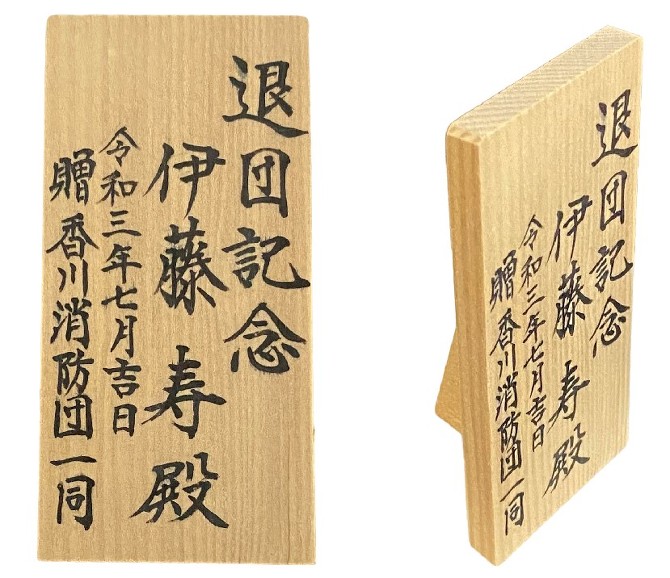 退団記念
伊藤寿殿
令和三年七月吉日
贈香川消防団一同
退団記念
伊藤寿殿
令和三年七月吉日
贈香川消防団一同